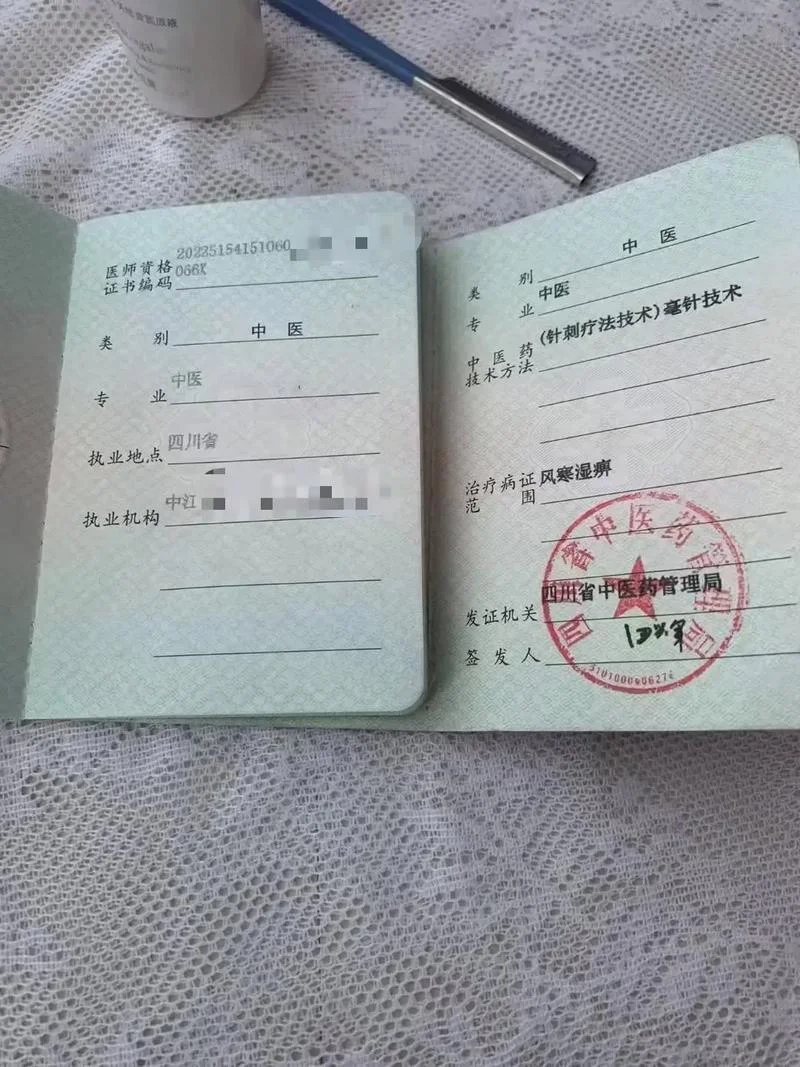 医师资格
证书编码
20225154151060
066X
类别 中医
专业 中医
执业地点 四川省
执业机构 中江
类别 中医
专业 中医
中医药
技术方法
(针刺疗法技术)毫针技术
治疗病证
范围
风寒湿痹
发证机关 四川省中医药管理局
签发人
四川省中医药管理局